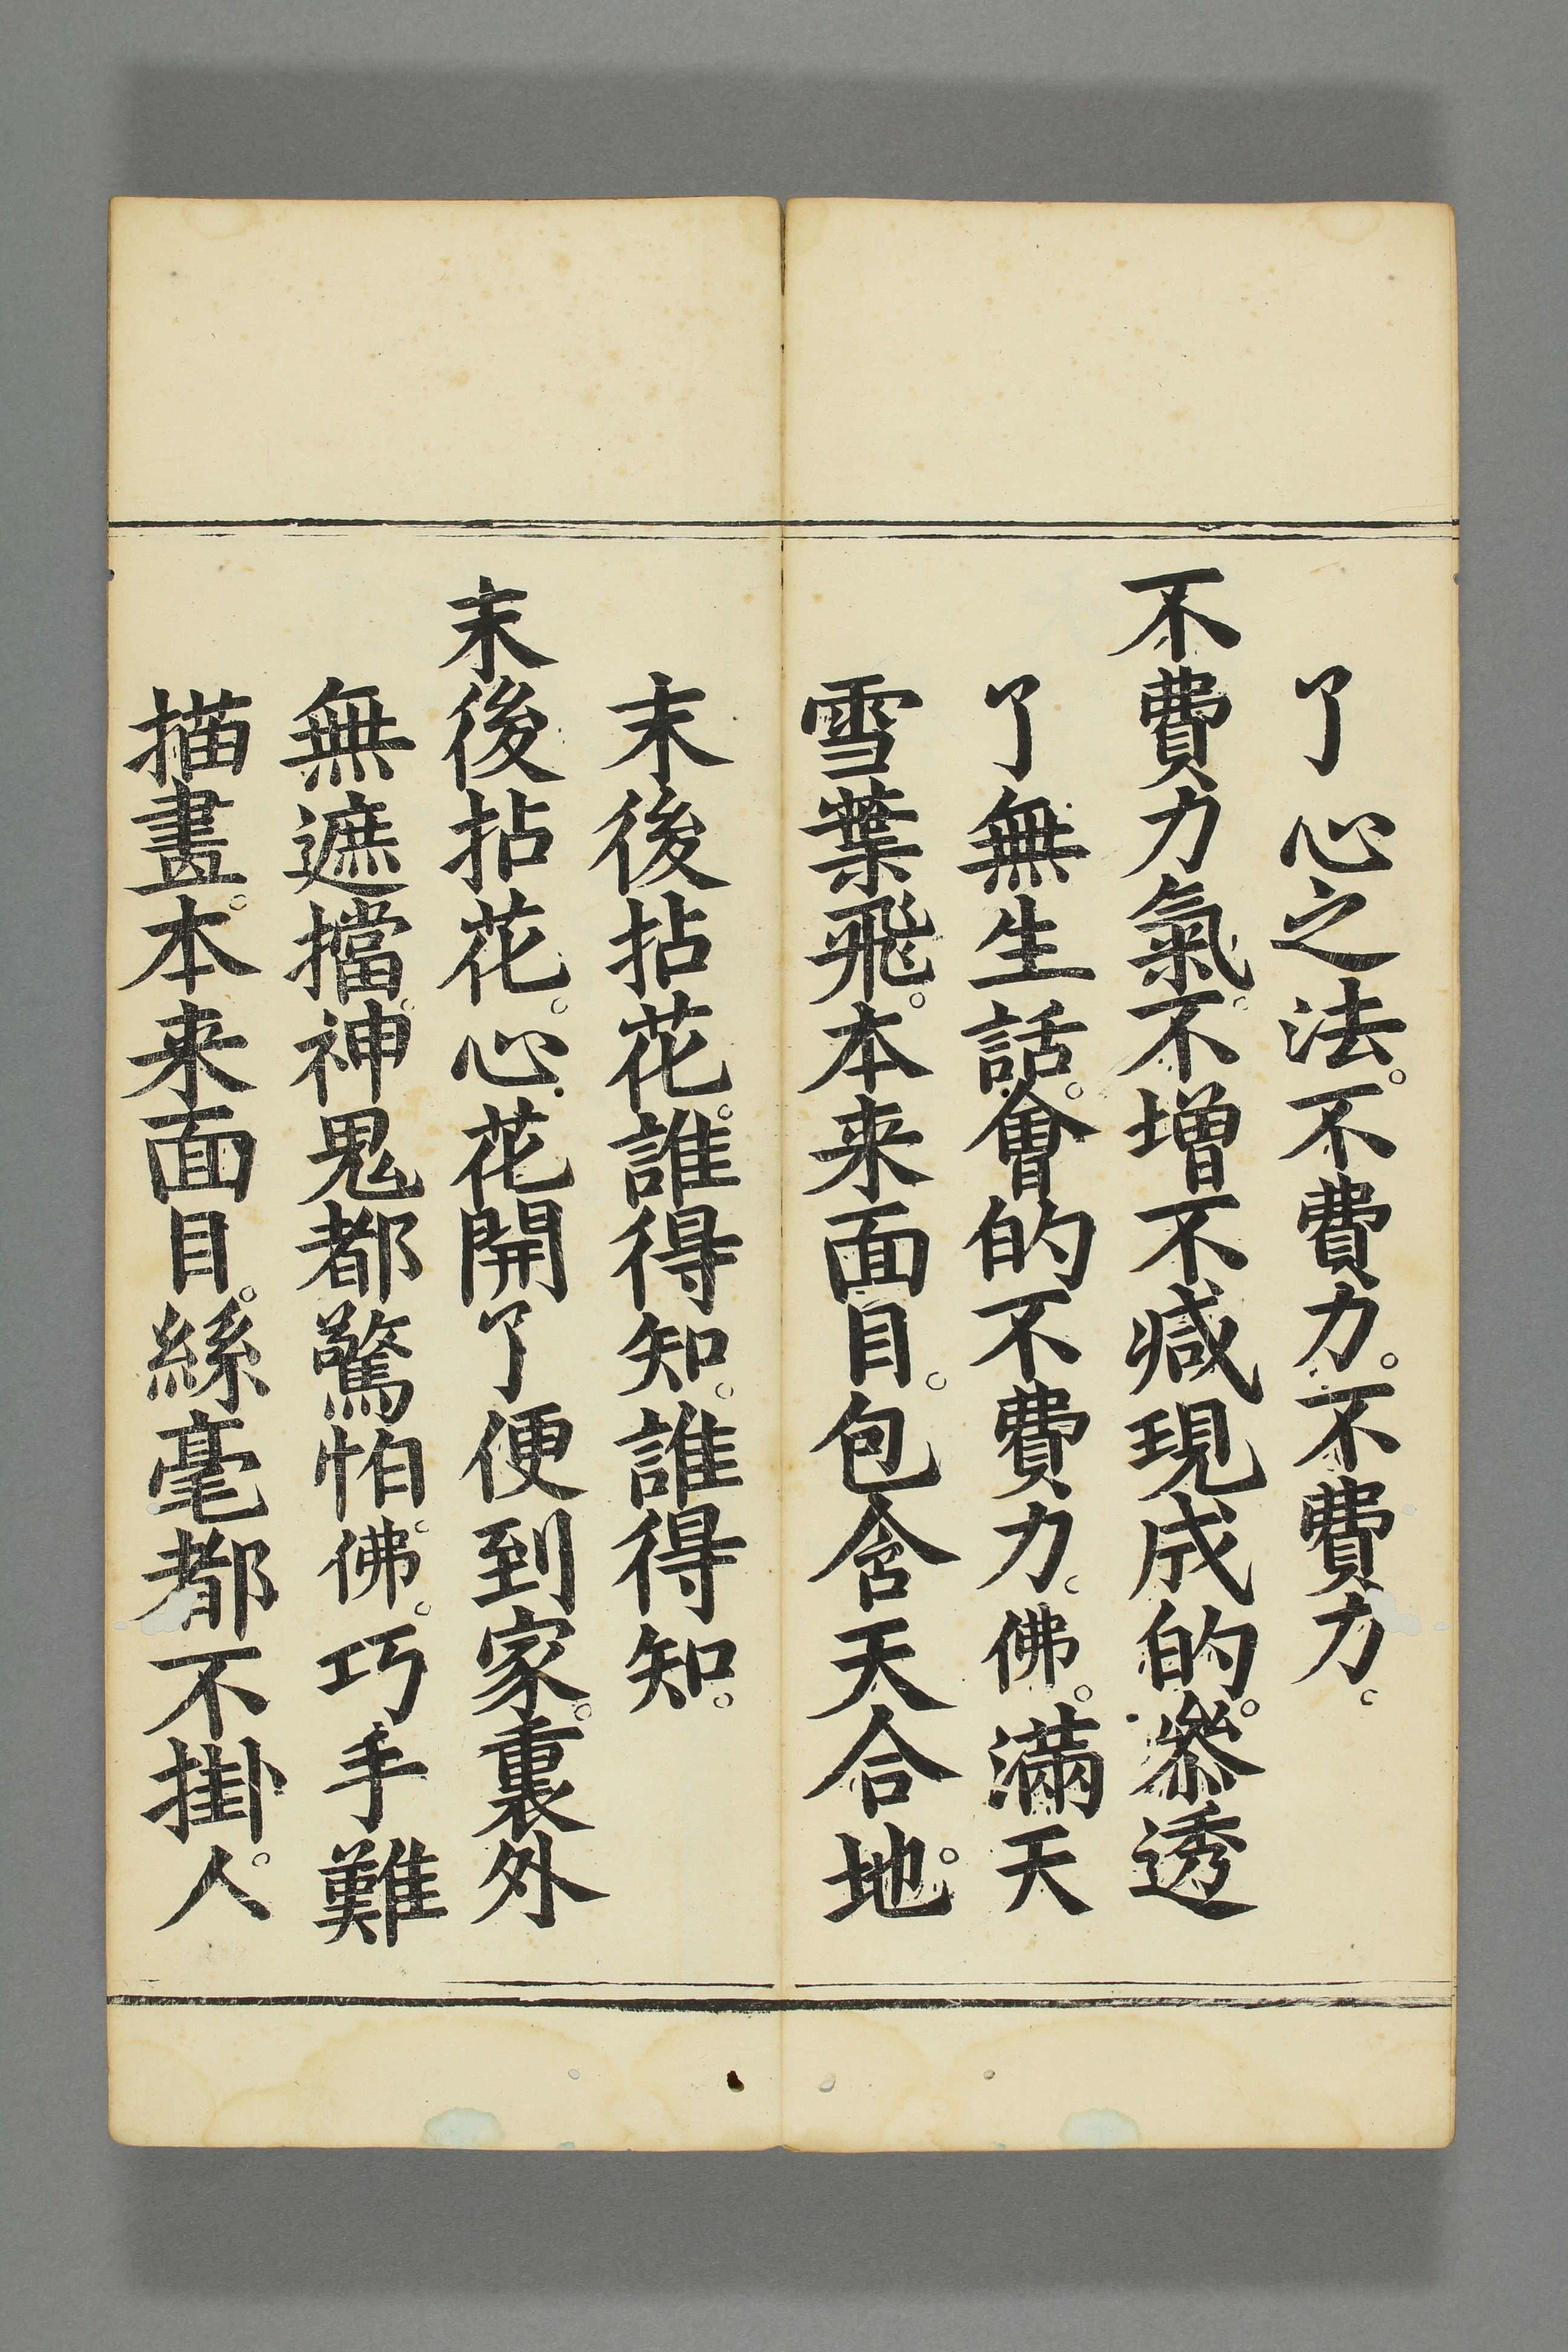 了心之法。不費力。不費力。
不費力氣。不增不减現成的。叅透
了無生話。會的不費力。佛。滿天
雪葉飛。本来面目。包含天合地。
末後拈花。誰得知。誰得知。
末後拈花。心花開了便到家。裏外
無遮擋。神鬼都驚怕。佛。巧手難
描畫。本来面目。絲毫都不掛。人